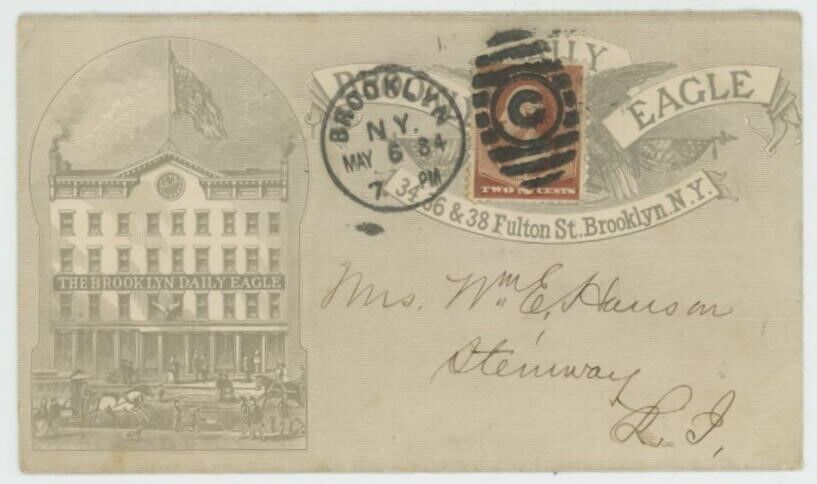 DAILY
EAGLE
34, 36 & 38 Fulton St. Brooklyn. N.Y.
BROOKLYN
N.Y.
MAY 6 84
7 PM
G
TWO CENTS
THE BROOKLYN DAILY EAGLE
Mrs. Wm E. Hanson
Steinway
L. I,